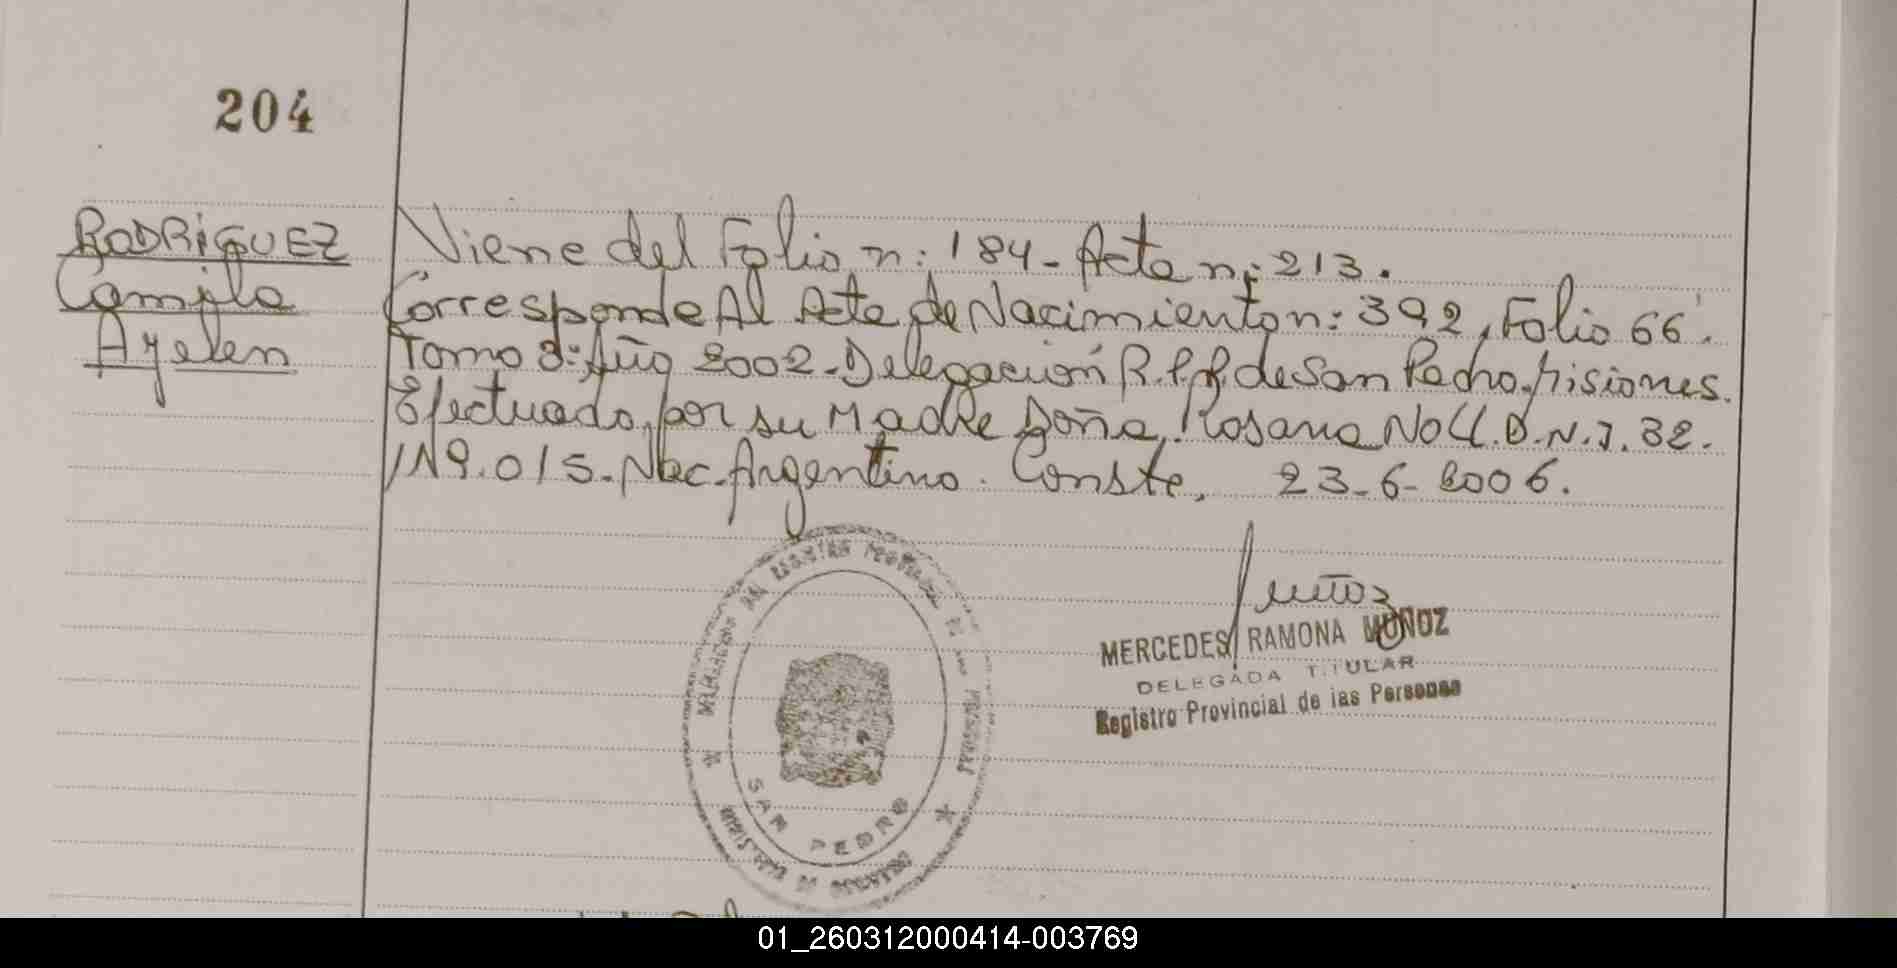 204
RODRiGUEZ
Camila
Ayelen
Viene del Folio n: 184- Acta n: 213.
Corresponde Al Acta de Nacimiento n: 392, Folio 66.
Tomo 3: Año 2002. Delegación R.P.P. de San Pedro. Misiones.
Efectuado por su Madre Doña, Rosana Noll. D.N.I. 32.
119.015. Nac. Argentina. Conste. 23-6-2006.
Muñoz
MERCEDES RAMONA MUÑOZ
DELEGADA TITULAR
Registro Provincial de las Personas
SAN PEDRO
01_260312000414-003769